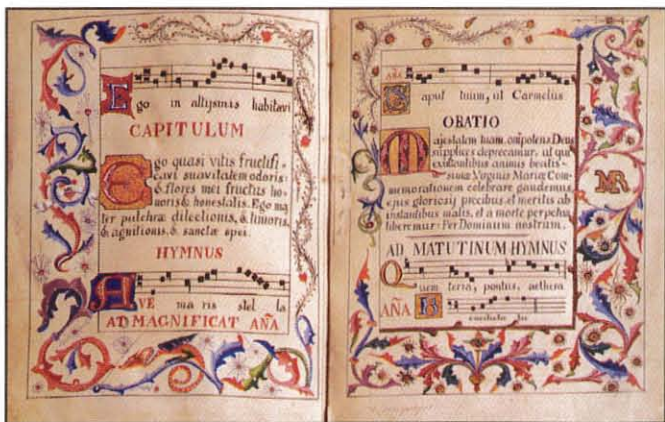 Ego in altissimis habitavi
CAPITULUM
Ego quasi vitis fructifi-
cavi suavitatem odoris:
& flores mei fructus ho-
noris & honestatis. Ego ma-
ter pulchræ dilectionis, & timoris,
& agnitionis, & sanctæ spei.
HYMNUS
AVE ma ris stel la
AD MAGNIFICAT AÑA
AÑA
Caput tuum, ut Carmelus
ORATIO
Majestatem tuam, omnipotens Deus
supplices deprecamur, ut qui
exultantibus animis beatis-
simæ Virginis Mariæ Com-
memorationem celebrare gaudemus
ejus gloriosis precibus, et meritis ab
instantibus malis, et a morte perpetua
liberemur: Per Dominum nostrum.
AD MATUTINUM HYMNUS
Quem terra, pontus, aethera
AÑA B